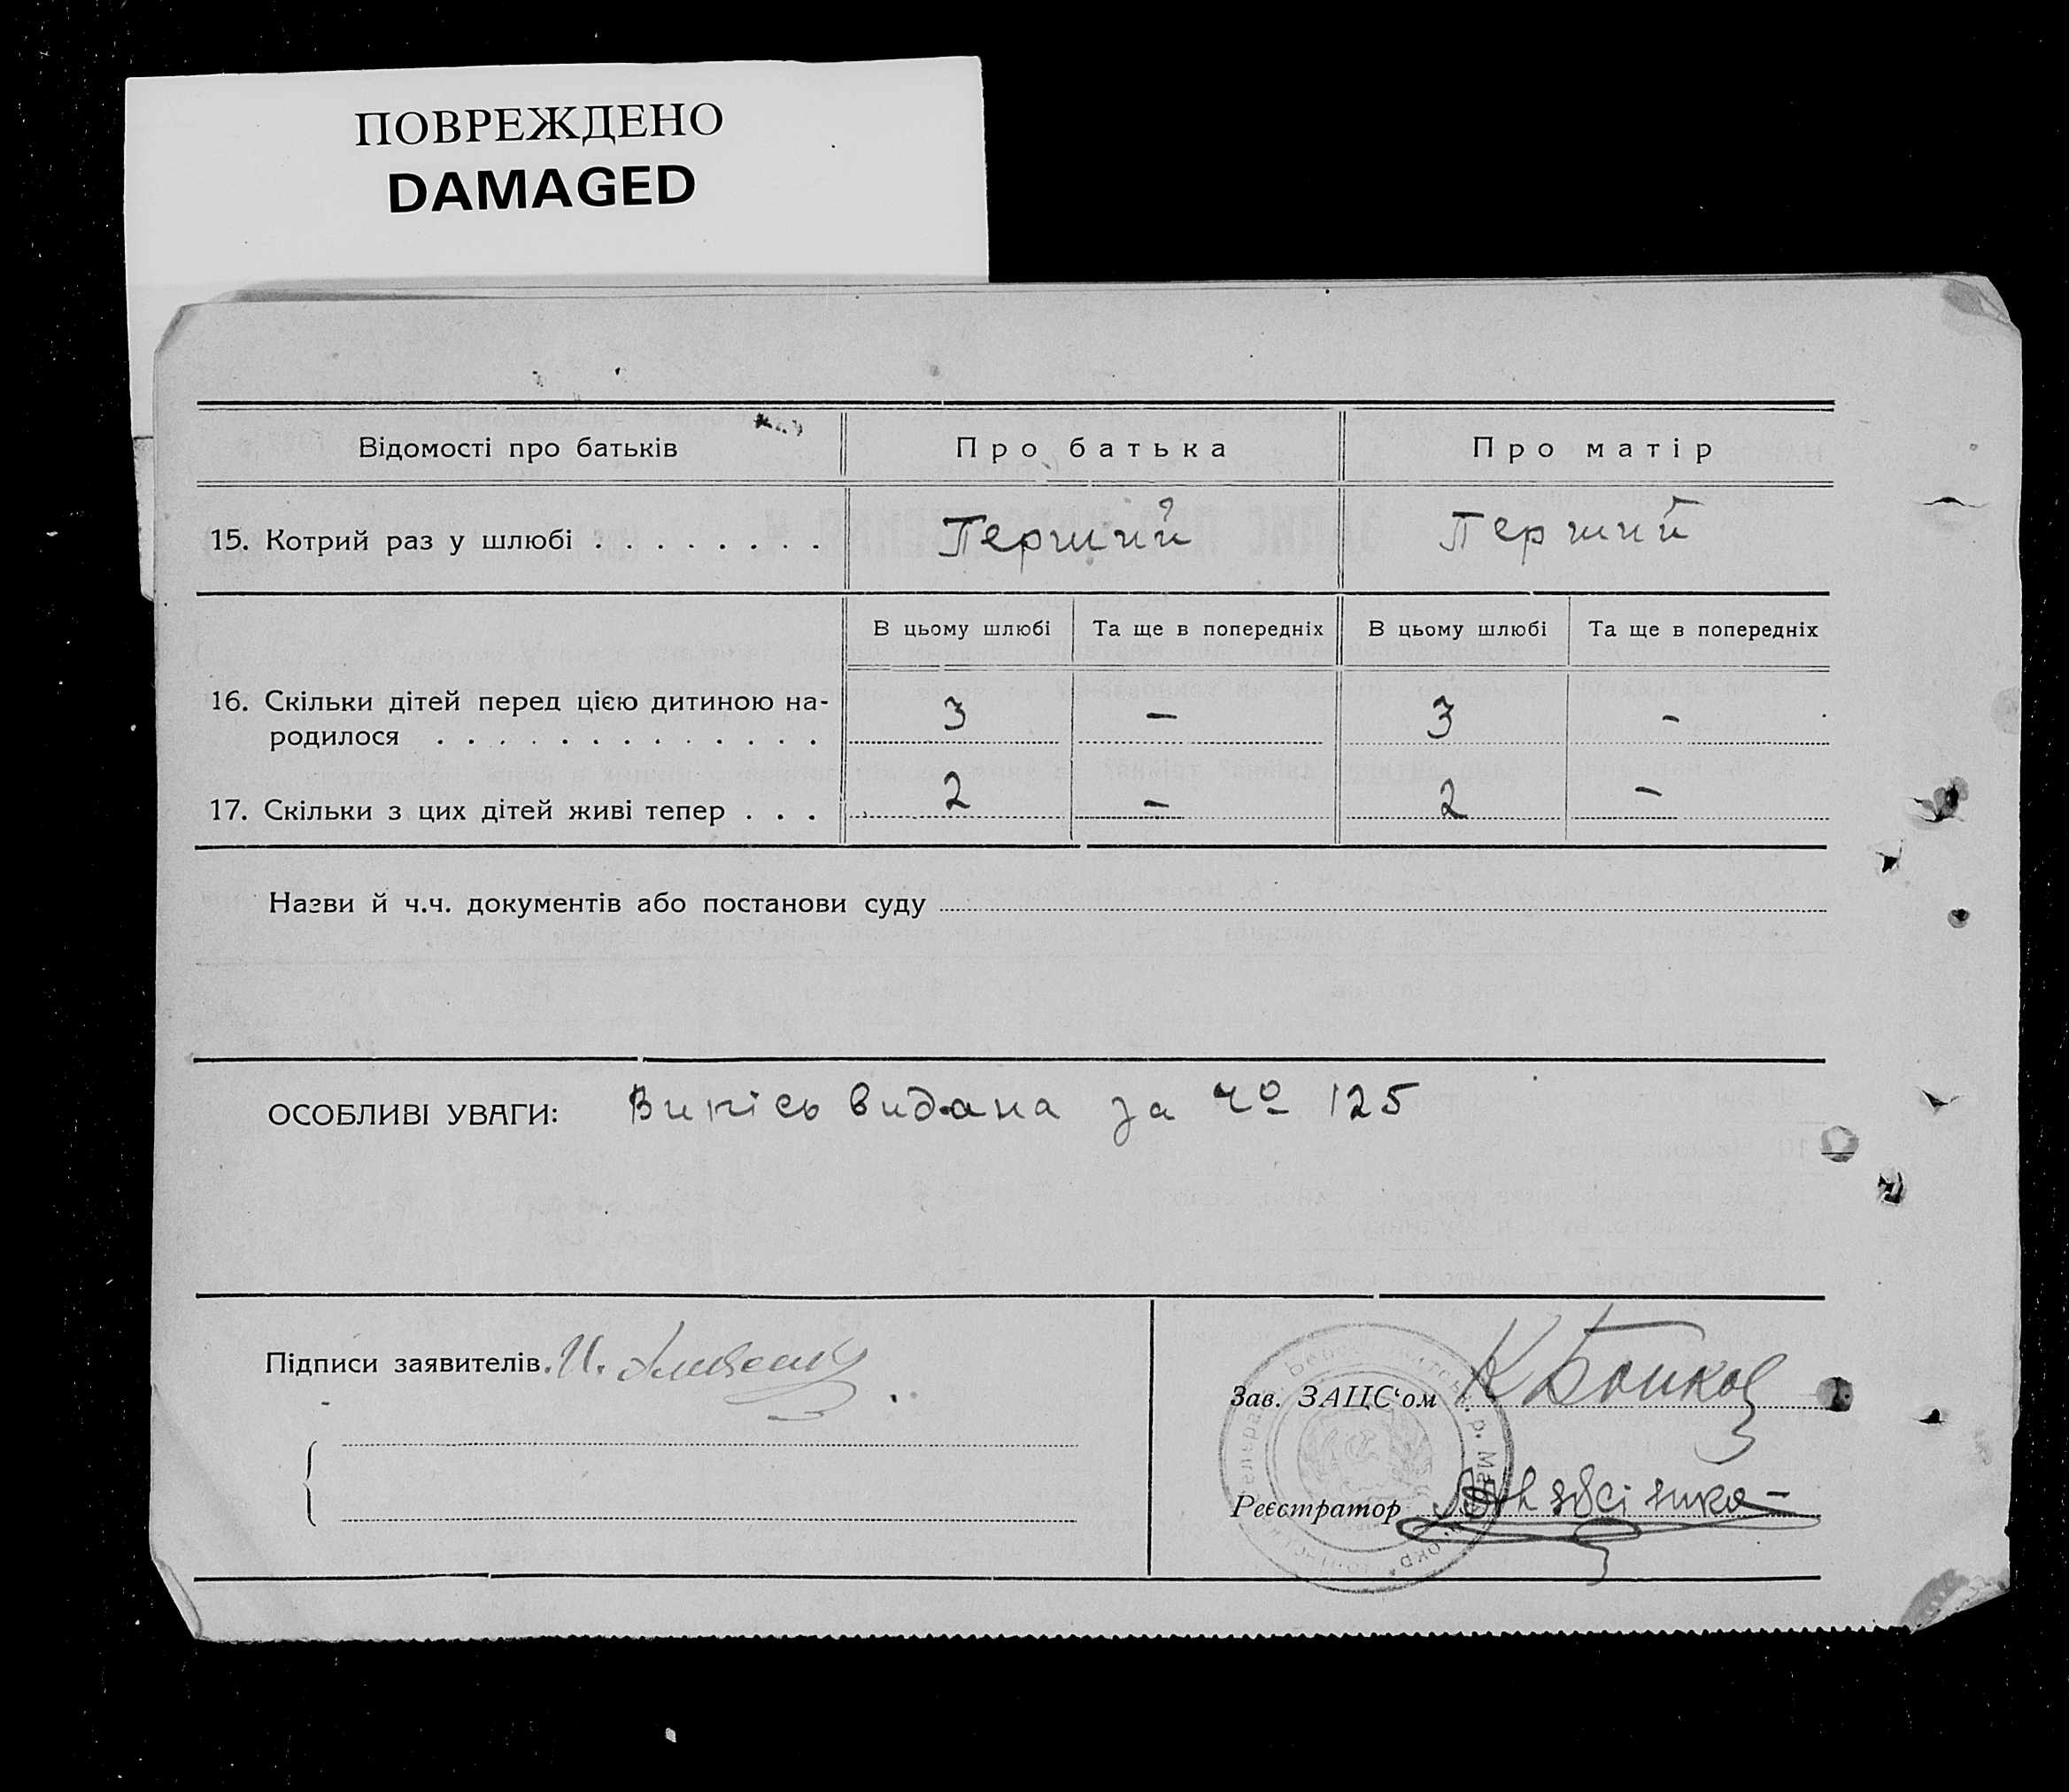 ПОВРЕЖДЕНО
DAMAGED
Відомості про батьків
Про батька
Про матір
15. Котрий раз у шлюбі . . . . . . . .
Перший
Перший
В цьому шлюбі
Та ще в попередніх
В цьому шлюбі
Та ще в попередніх
16. Скільки дітей перед цією дитиною на-
родилося . . . . . . . . . . . . .
3
–
3
–
17. Скільки з цих дітей живі тепер . . .
2
–
2
–
Назви й ч.ч. документів або постанови суду
ОСОБЛИВІ УВАГИ: Випісь видана за чо 125
Підписи заявителів. И.
Зав. ЗАЦС‘ом
Реєстратор